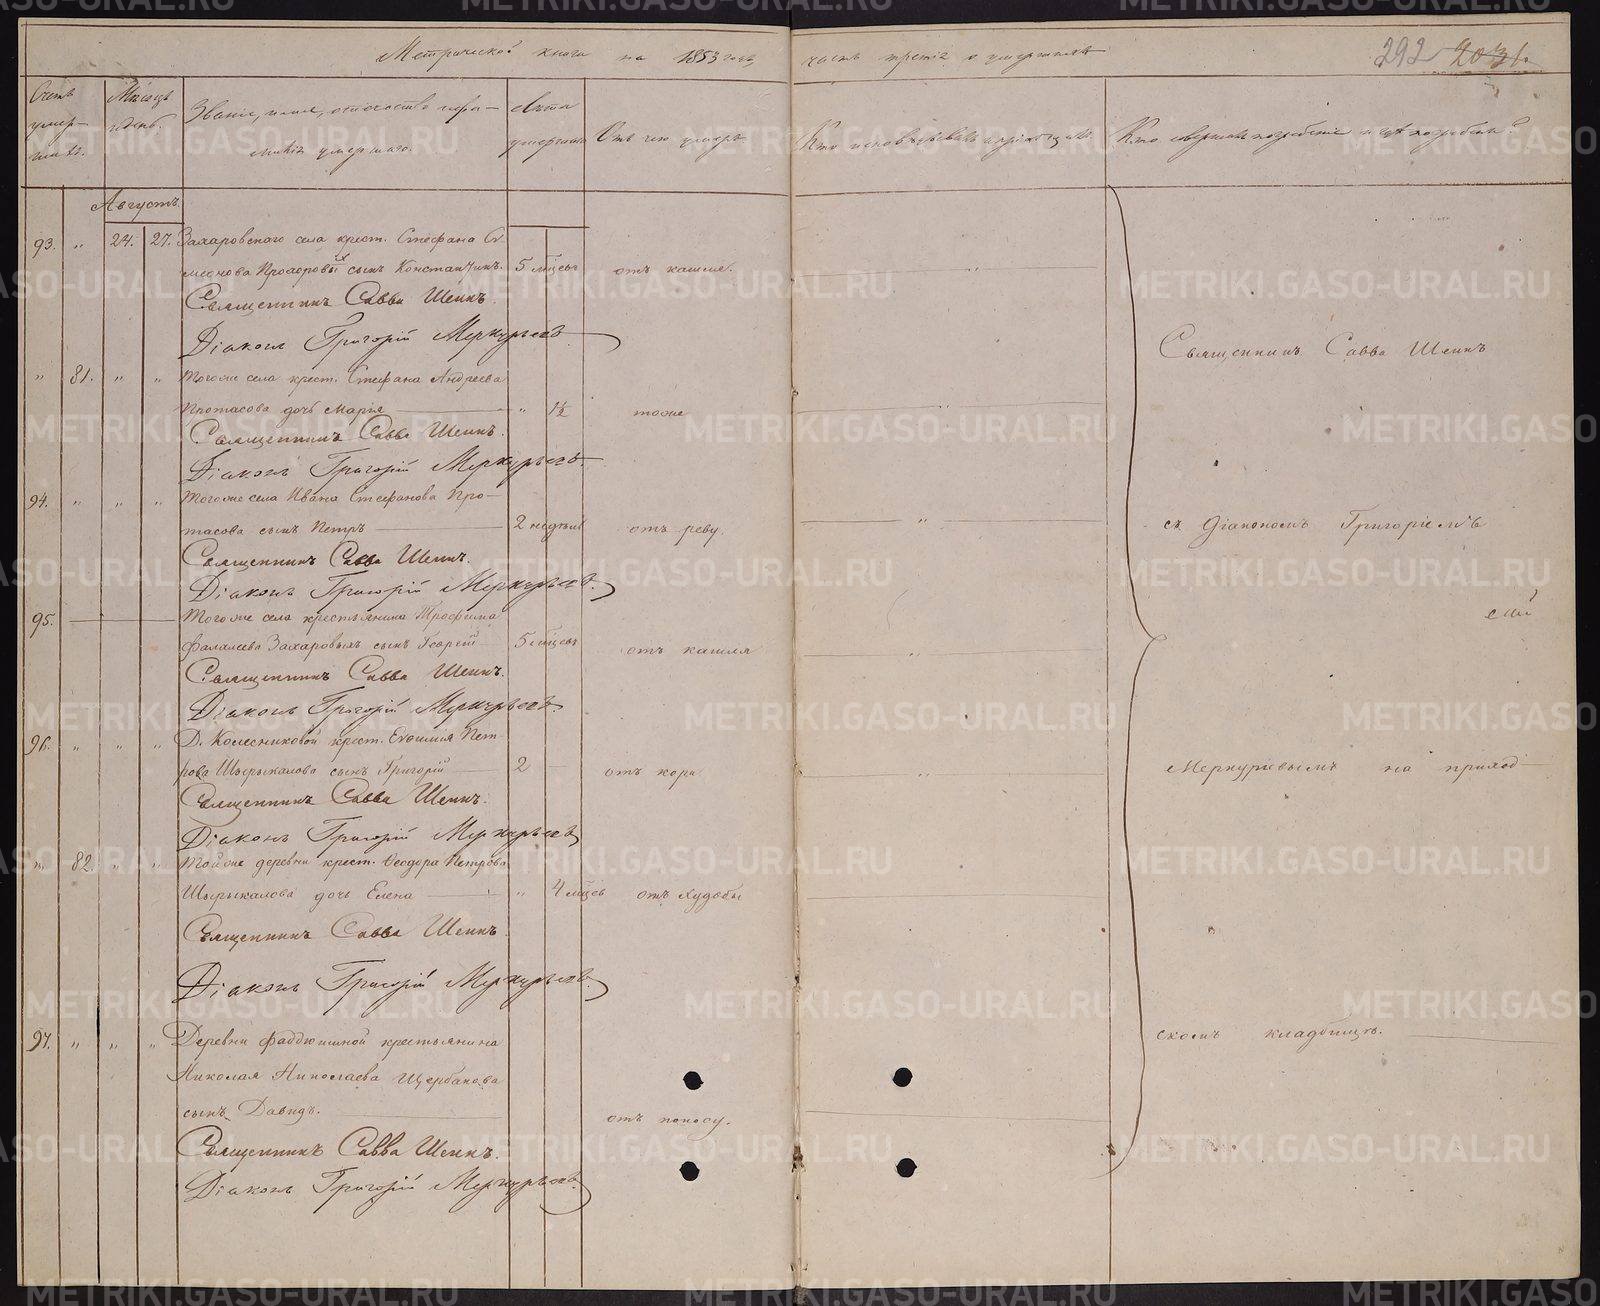 Метрической книги на 1853 годъ часть третія о умершихъ
292 2031.
Счетъ умер-
шихъ.
Мѣсяцъ
и день.
Званіе, имя, отечество и фа-
милія умершаго.
Лѣта
умершаго
Отъ чего умеръ
Кто исповѣдывалъ и пріобщалъ.
Кто совершалъ погребеніе и гдѣ погребены?
Августъ.
93. " 24. 27. Захаровскаго села крест. Стефана Си-
меонова Прохоровыхъ сынъ Константинъ. 5 мѣсец отъ кашля. "
Священникъ Савва Шеинъ.
Діаконъ Григорій Меркурьевъ
Священникъ Савва Шеинъ
" 81. " " Тогоже села крест. Стефана Андреева
Протасова дочь Марія " 1½ тоже "
Священникъ Савва Шеинъ.
Діаконъ Григорій Меркурьевъ.
94. " " " Тогоже села Ивана Стефанова Про-
тасова сынъ Петръ 2 недѣли отъ реву. "
съ Діакономъ Григоріемъ
Священникъ Савва Шеинъ.
Діаконъ Григорій Меркурьевъ.
95. Тогоже села крестьянина Трофима
Фалалеева Захаровыхъ сынъ Георгій 5 мѣсец отъ кашля "
Священникъ Савва Шеинъ.
Діаконъ Григорій Меркурьевъ.
96. " " " Д. Колесниковой крест. Евѳимія Пет-
рова Шырыкалова сынъ Григорій 2 отъ кори "
Меркурьевымъ на приход-
Священникъ Савва Шеинъ.
Діаконъ Григорій Меркурьевъ
" 82. " " Тойже деревни крест. Ѳеодора Петрова
Шырыкалова дочь Елена " 4 мѣсев отъ худобы
Священникъ Савва Шеинъ
Діаконъ Григорій Меркурьевъ.
скомъ кладбищѣ.
97. " " " Деревни Фаддюшиной крестьянина
Николая Николаева Щербакова
сынъ Давидъ. отъ поносу.
Священникъ Савва Шеинъ.
Діаконъ Григорій Меркурьевъ.
METRIKI.GASO-URAL.RU